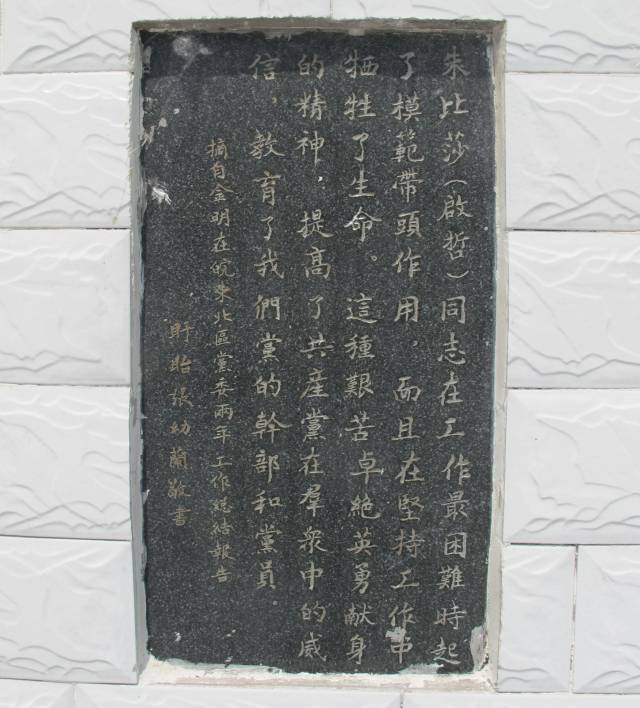 朱比莎(啟哲)同志在工作最困難時起
了模範帶頭作用，而且在堅持工作中
牺牲了生命。這種艱苦卓絶英勇献身
的精神，提高了共産黨在羣衆中的威
信，教育了我們黨的幹部和黨員。
摘自金明在皖東北區黨委兩年工作總結報告
盱眙張幼蘭敬書